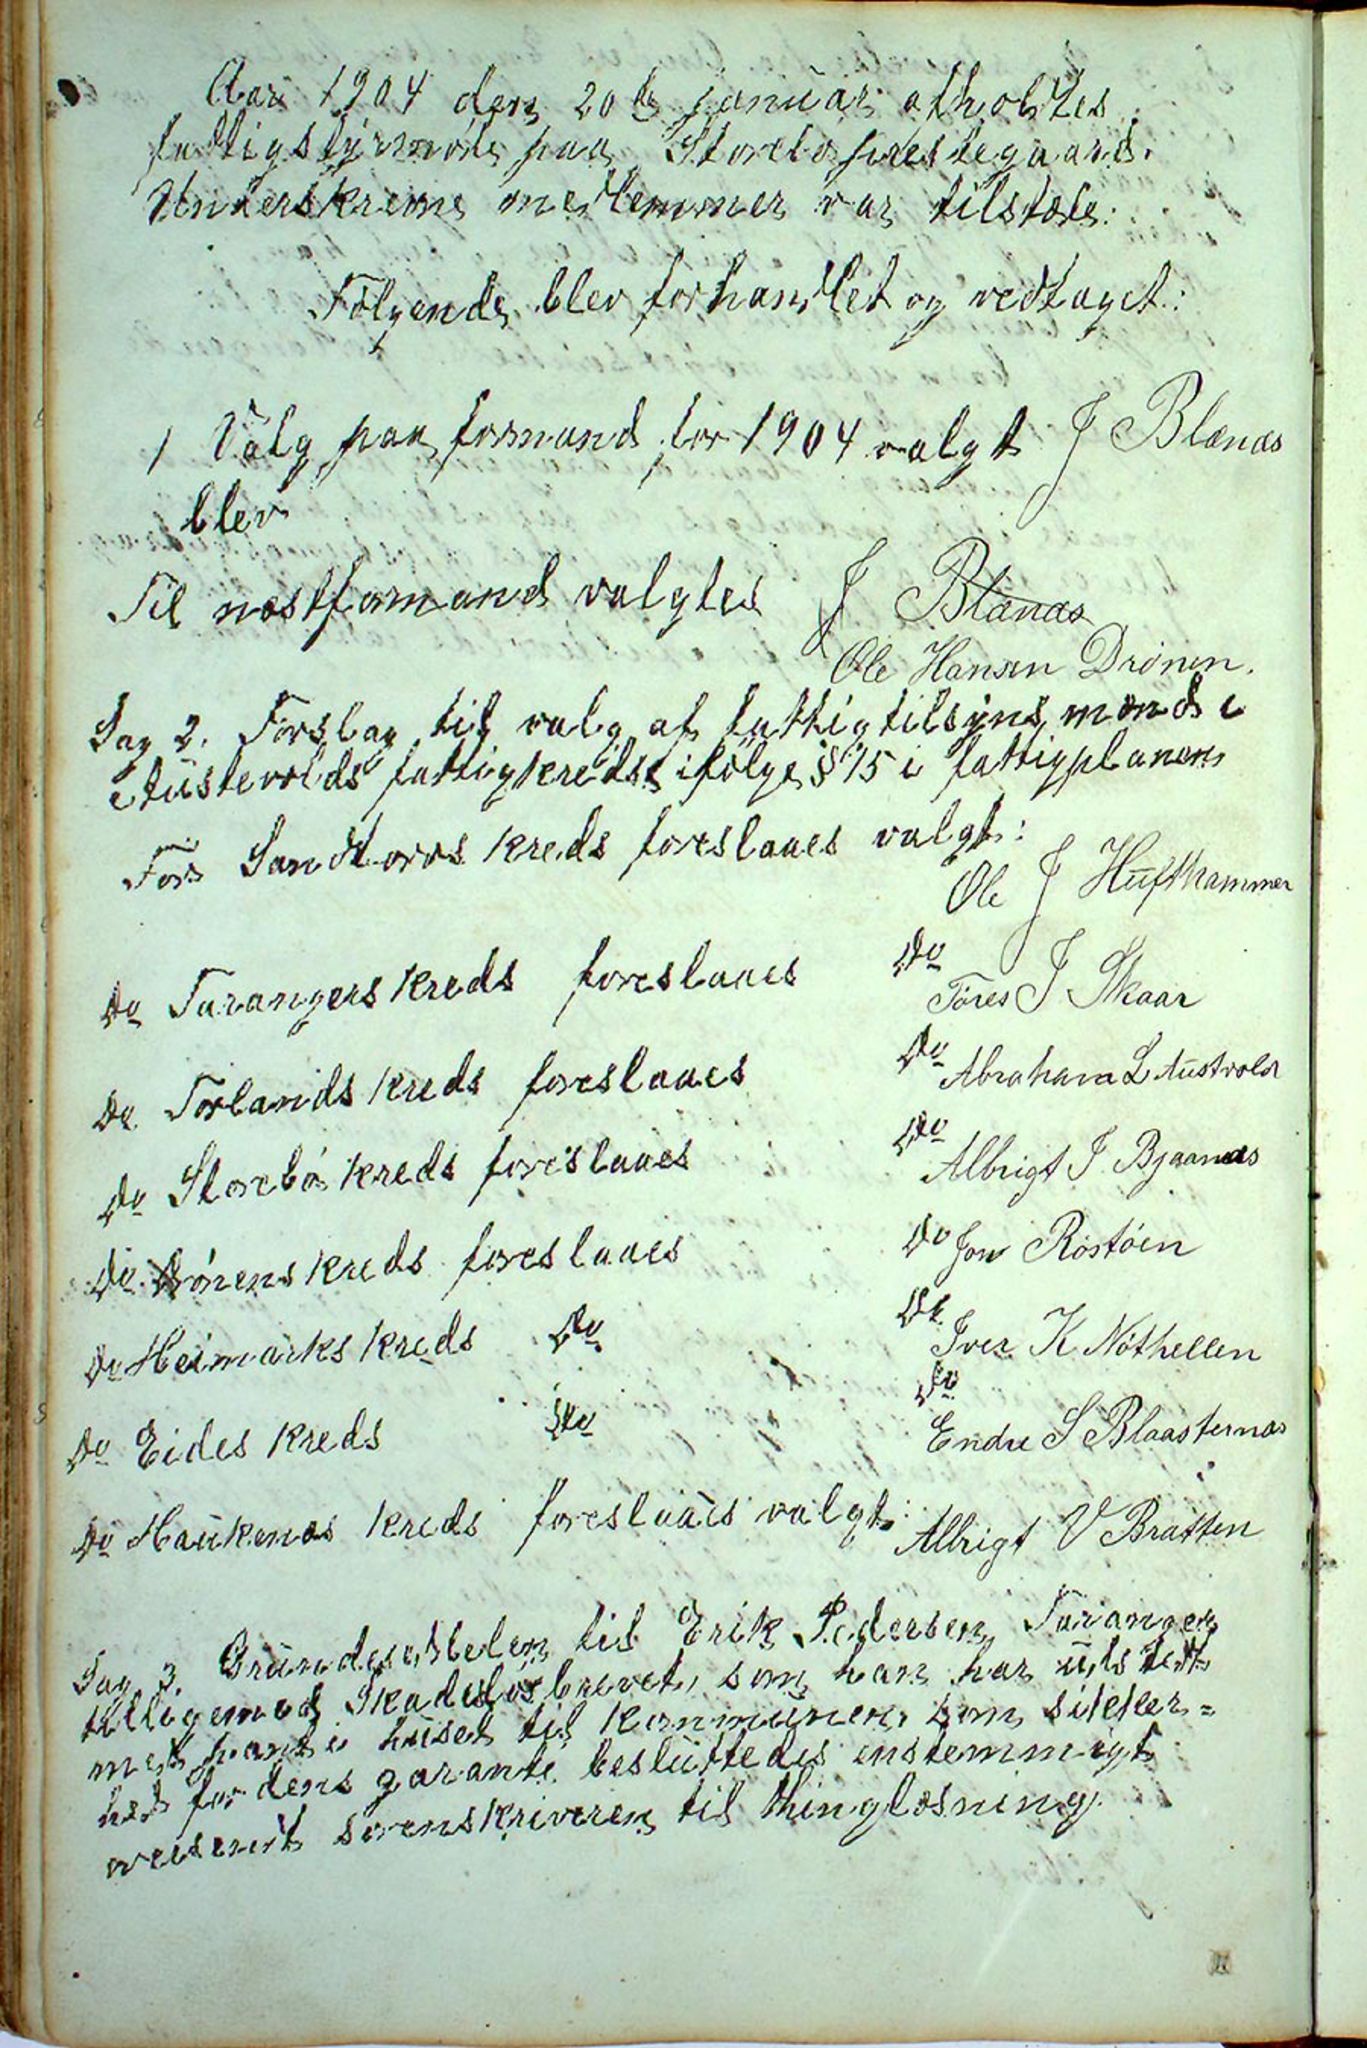 Aar 1904 den 20de januar afholdtes
fattigstyrmøde paa Storebø prestegaard.
Underskrevne medlemmer var tilstede:
Følgende blev forhandlet og vedtaget:
1 Valg paa formand for 1904 valgt J Blænæs
blev
Til næstformand valgtes J Blænæs
Ole Hansen Drönen.
Sag 2. Forslag til valg af fattigtilsynsmænd i
Austevolds fattigkredse ifølge § 15 i fattigplanen
For Sandtorvs kreds foreslaaes valgt:
Ole J Hufthammer
Do Tarangers kreds foreslaaes Do
Töres J Skaar
Do Torlands kreds foreslaaes Do
Abraham L Austvold
Do Storebö kreds foreslaaes Do
Albrigt J. Bjaanæs
Do Drönens kreds foreslaaes Do Jon Röstöen
Do Heimarks kreds Do Do
Iver K Nöthellen
Do Eides kreds Do Do
Endre S Blaasternæs
Do Haukenæs kreds foreslaaes valgt: Albrigt V Bratten
Sag 3. Grundesedbelen til Erik Pedersen Taranger
tilligemed Skadeslösbrevet, som han har udstedt
med pant i huset til kommunen som sikker=
hed for dens garanti besluttedes enstemmigt
sorenskriveren til thinglæsning.